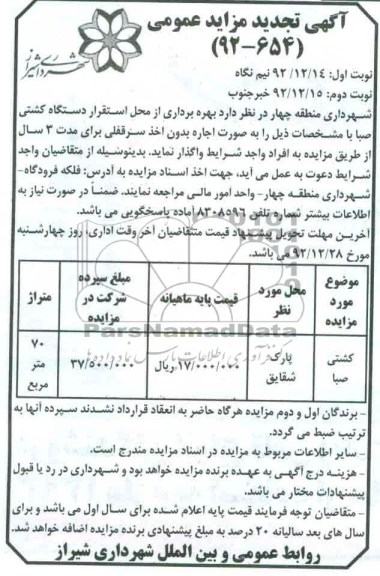 آگهی تجدید مزاید عمومی
(۹۲-۶۵۴)
شهرداری شیراز
نوبت اول: ۹۲/۱۲/۱۴ نیم نگاه
نوبت دوم: ۹۲/۱۲/۱۵ خبرجنوب
شهرداری منطقه چهار در نظر دارد بهره برداری از محل استقرار دستگاه کشتی
صبا با مشخصات ذیل را به صورت اجاره بدون اخذ سرقفلی برای مدت ۳ سال
از طریق مزایده به افراد واجد شرایط واگذار نماید. بدینوسیله از متقاضیان واجد
شرایط دعوت به عمل می آید، جهت اخذ اسناد مزایده به آدرس: فلکه فرودگاه-
شهرداری منطقه چهار- واحد امور مالی مراجعه نمایند. ضمناً در صورت نیاز به
اطلاعات بیشتر شماره تلفن ۸۳۰۸۵۹۶ آماده پاسخگویی می باشد.
آخرین مهلت تحویل پیشنهاد قیمت متقاضیان آخر وقت اداری، روز چهارشنبه
مورخ ۹۲/۱۲/۲۸ می باشد.
موضوع مورد مزایده
محل مورد نظر
قیمت پایه ماهیانه
مبلغ سپرده شرکت در مزایده
متراژ
کشتی صبا
پارک شقایق
۱۷/۰۰۰/۰۰۰ ریال
۳۷/۵۰۰/۰۰۰
۷۰ متر مربع
ParsNamadData
- برندگان اول و دوم مزایده هرگاه حاضر به انعقاد قرارداد نشدند سپرده آنها به
ترتیب ضبط می گردد.
- سایر اطلاعات مربوط به مزایده در اسناد مزایده مندرج است.
- هزینه درج آگهی به عهده برنده مزایده خواهد بود و شهرداری در رد یا قبول
پیشنهادات مختار می باشد.
- متقاضیان توجه فرمایند قیمت پایه اعلام شده برای سال اول می باشد و برای
سال های بعد سالیانه ۲۰ درصد به مبلغ پیشنهادی برنده مزایده اضافه خواهد شد.
روابط عمومی و بین الملل شهرداری شیراز